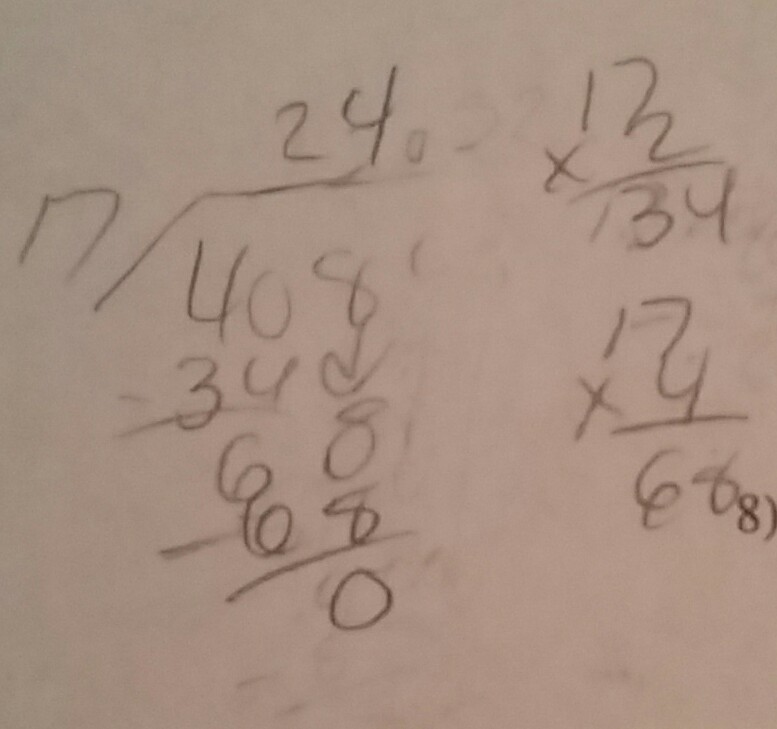 24.
17
408
- 34
68
- 68
0
17
× 2
134
17
× 4
68
8)